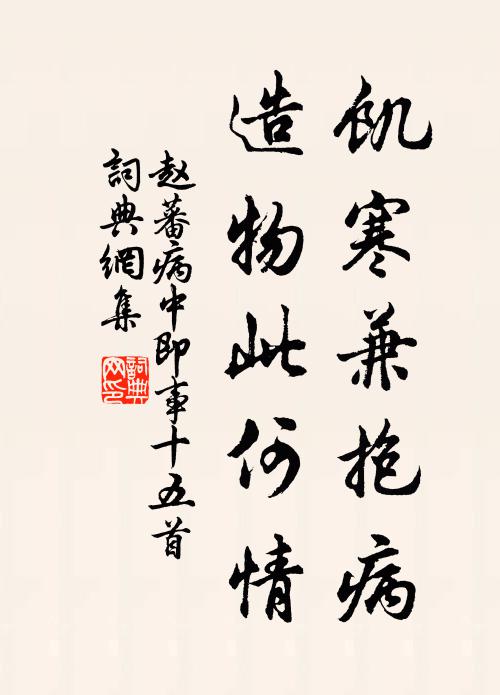 飢寒兼抱病
造物此何情
赵蕃病中即事十五首
詞典網集
詞典网印